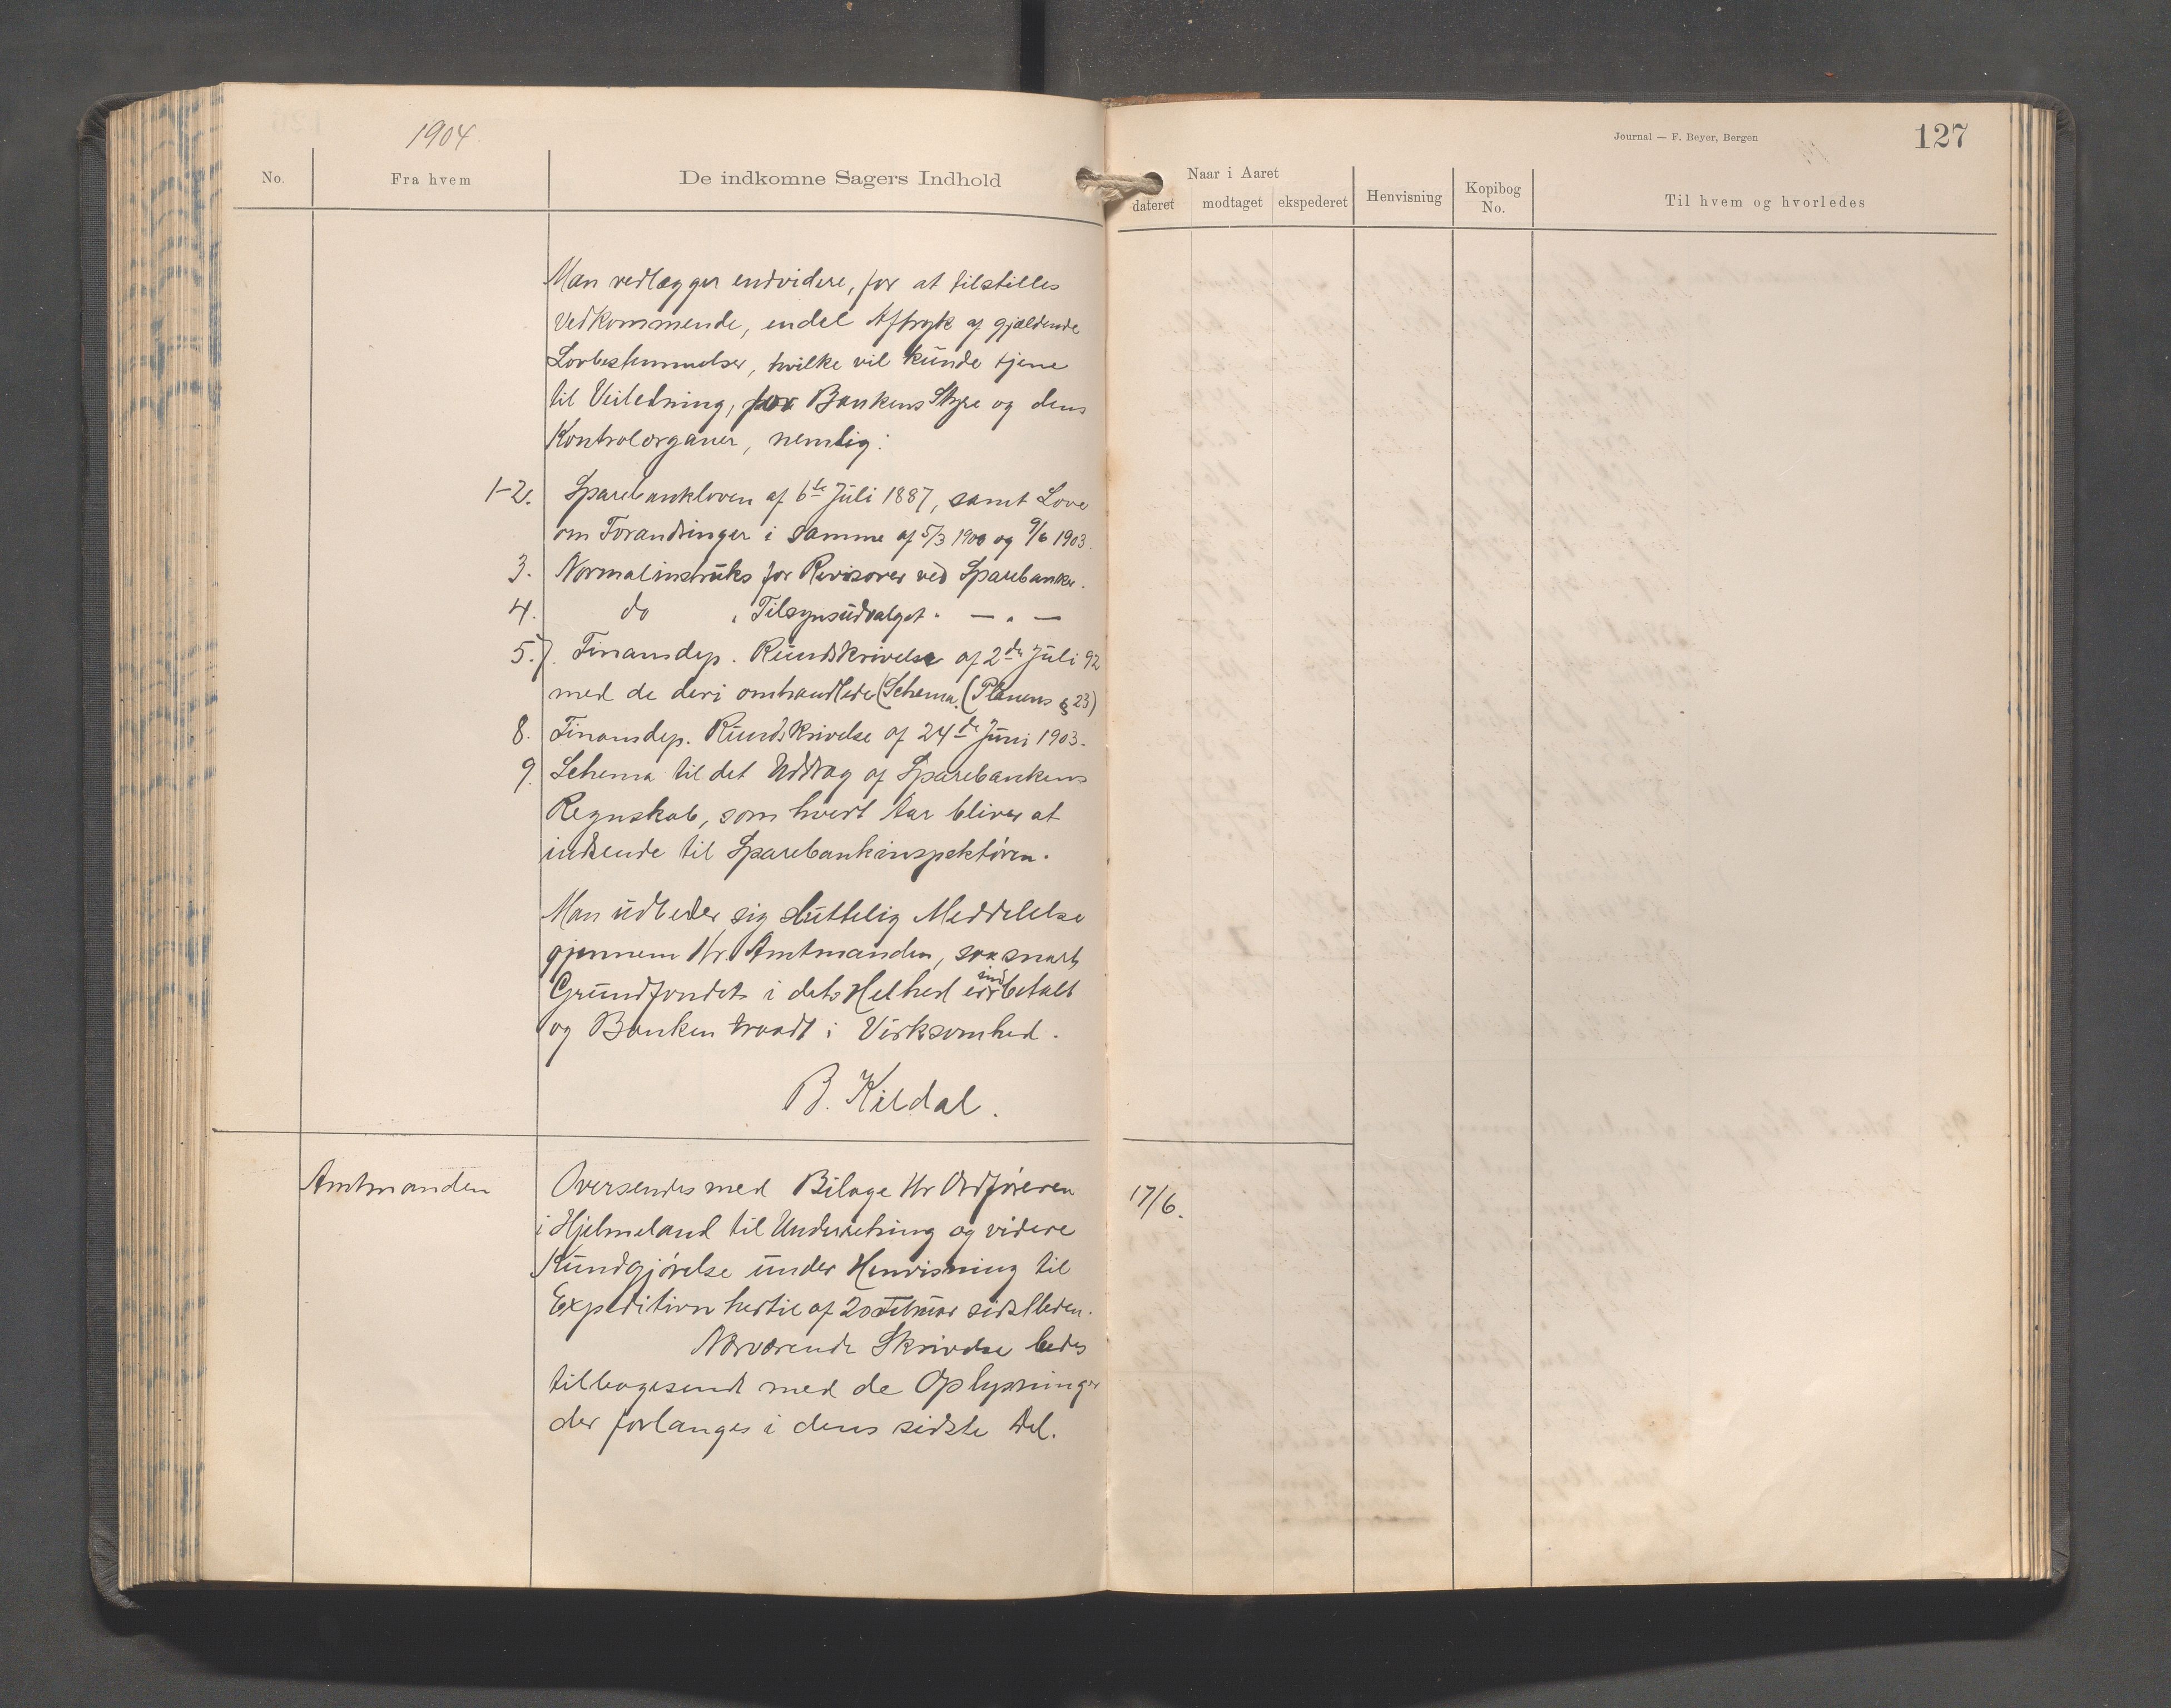 1904.
No.
Fra hvem
De indkomne Sagers Indhold
Man vedlægger endvidere, for at tilstilles
Vedkommende, endel Aftryk af gjældende
Lovbestemmelser, hvilke vil kunde tjene
til Veiledning, for Bankens Styre og dens
Kontrolorganer, nemlig:
1-2. Sparebankloven af 6te Juli 1887, samt Love
om Forandringer i samme af 5/3 1900 og 9/6 1903.
3. Normalinstruks for Revisorer ved Sparebanke.
4. do " Tilsynsudvalget " — " —
5.7. Finansdep. Rundskrivelse af 2den Juli 92
med de deri omhandlede Schema. (Planens § 23)
8. Finansdep. Rundskrivelse af 24de Juni 1903.
9. Schema til det Uddrag af Sparebankens
Regnskab, som hvert Aar bliver at
indsende til Sparebankinspektøren.
Man udbeder sig sluttelig Meddelelse
gjennem Hr. Amtmanden, saasnart
Grundfondet i dets Helhed er indbetalt
og Banken traadt i Virksomhed.
B. Kildal.
Amtmanden
Oversendes med Bilage Hr Ordføreren
i Hjelmeland til Underretning og videre
Kundgjørelse under Henvisning til
Expedition hertil af 20 Februar sidstleden.
Nærværende Skrivelse bedes
tilbagesendt med de Oplysninger
der forlanges i dens sidste Del.
Journal — F. Beyer, Bergen
127
Naar i Aaret
dateret
modtaget
ekspederet
Henvisning
Kopibog
No.
Til hvem og hvorledes
17/6.